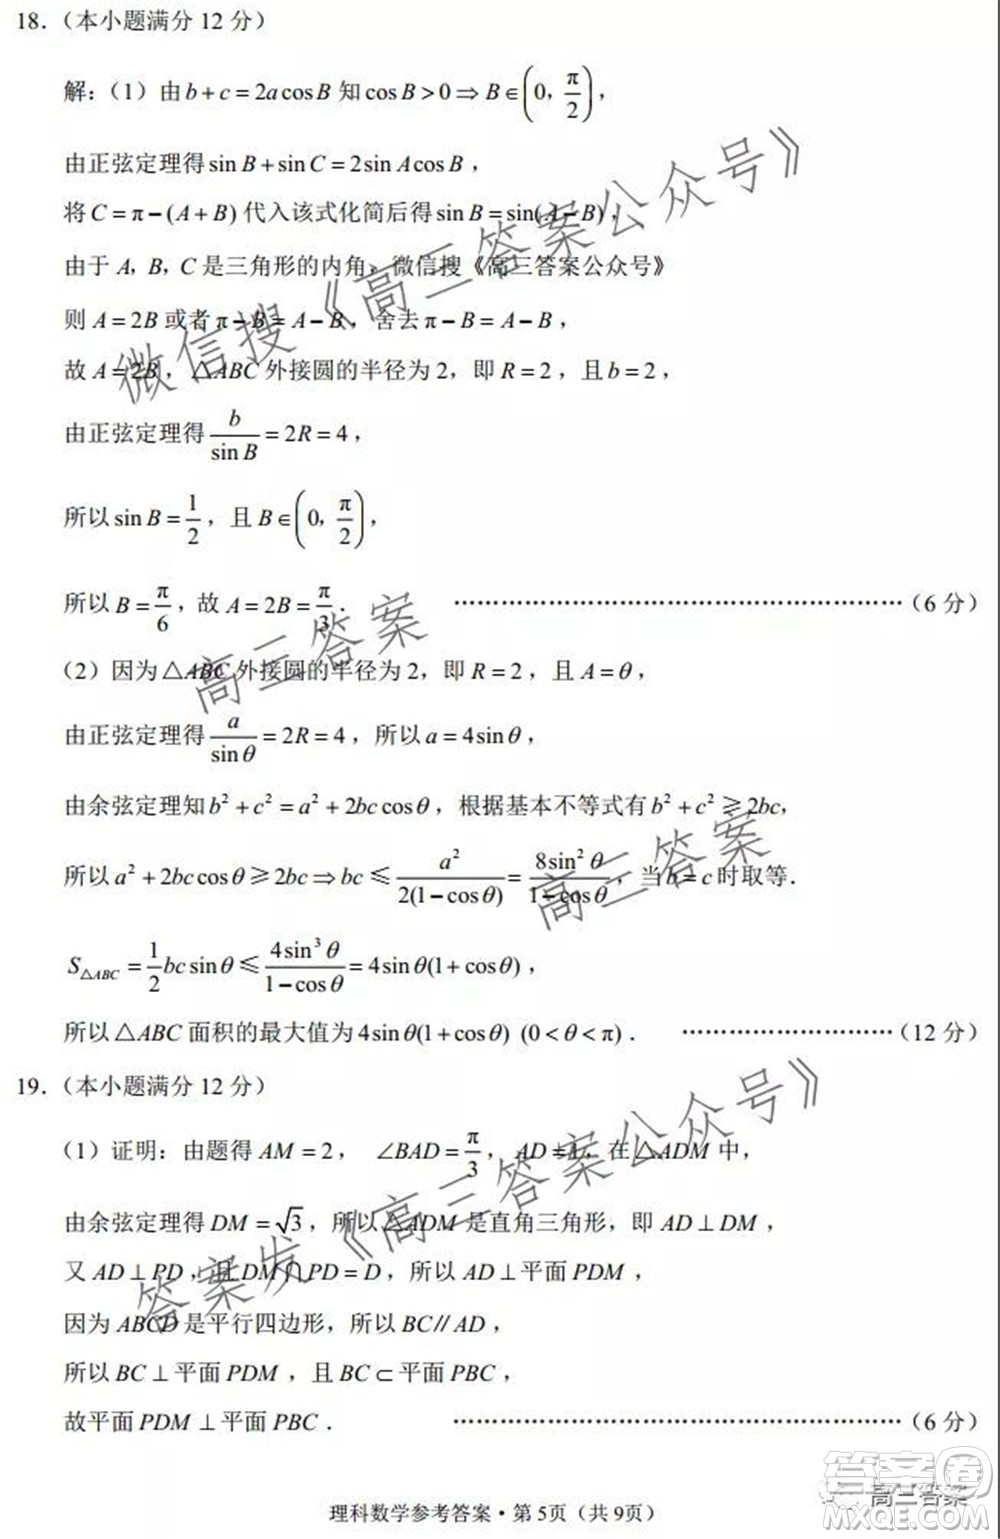 18．（本小题满分 12 分）
解：（1）由 b + c = 2a cos B 知 cos B > 0 ⇒ B ∈ (0, π/2)，
由正弦定理得 sin B + sin C = 2sin A cos B，
将 C = π − (A + B) 代入该式化简后得 sin B = sin(A − B)，
由于 A，B，C 是三角形的内角，微信搜《高三答案公众号》
则 A = 2B 或者 π − B = A − B，舍去 π − B = A − B，
故 A = 2B，△ABC 外接圆的半径为 2，即 R = 2，且 b = 2，
由正弦定理得 b/sin B = 2R = 4，
所以 sin B = 1/2，且 B ∈ (0, π/2)，
所以 B = π/6，故 A = 2B = π/3． ……………………………………………………（6 分）
（2）因为 △ABC 外接圆的半径为 2，即 R = 2，且 A = θ，
由正弦定理得 a/sin θ = 2R = 4，所以 a = 4sin θ，
由余弦定理知 b² + c² = a² + 2bc cos θ，根据基本不等式有 b² + c² ≥ 2bc，
所以 a² + 2bc cos θ ≥ 2bc ⇒ bc ≤ a²/2(1 − cos θ) = 8sin² θ/1 − cos θ，当 b = c 时取等．
S△ABC = 1/2 bc sin θ ≤ 4sin³ θ/1 − cos θ = 4sin θ(1 + cos θ)，
所以 △ABC 面积的最大值为 4sin θ(1 + cos θ) (0 < θ < π)． ………………………（12 分）
19．（本小题满分 12 分）
（1）证明：由题得 AM = 2， ∠BAD = π/3，AD = 1，在 △ADM 中，
由余弦定理得 DM = √3，所以 △ADM 是直角三角形，即 AD ⊥ DM，
又 AD ⊥ PD，且 DM ∩ PD = D，所以 AD ⊥ 平面 PDM，
因为 ABCD 是平行四边形，所以 BC // AD，
所以 BC ⊥ 平面 PDM，且 BC ⊂ 平面 PBC，
故平面 PDM ⊥ 平面 PBC． ……………………………………………………（6 分）
理科数学参考答案·第 5页（共 9页）
微信搜《高三答案公众号》
高三答案
高三答案
答案发《高三答案公众号》
高三答案
答案圈
MXQE.COM